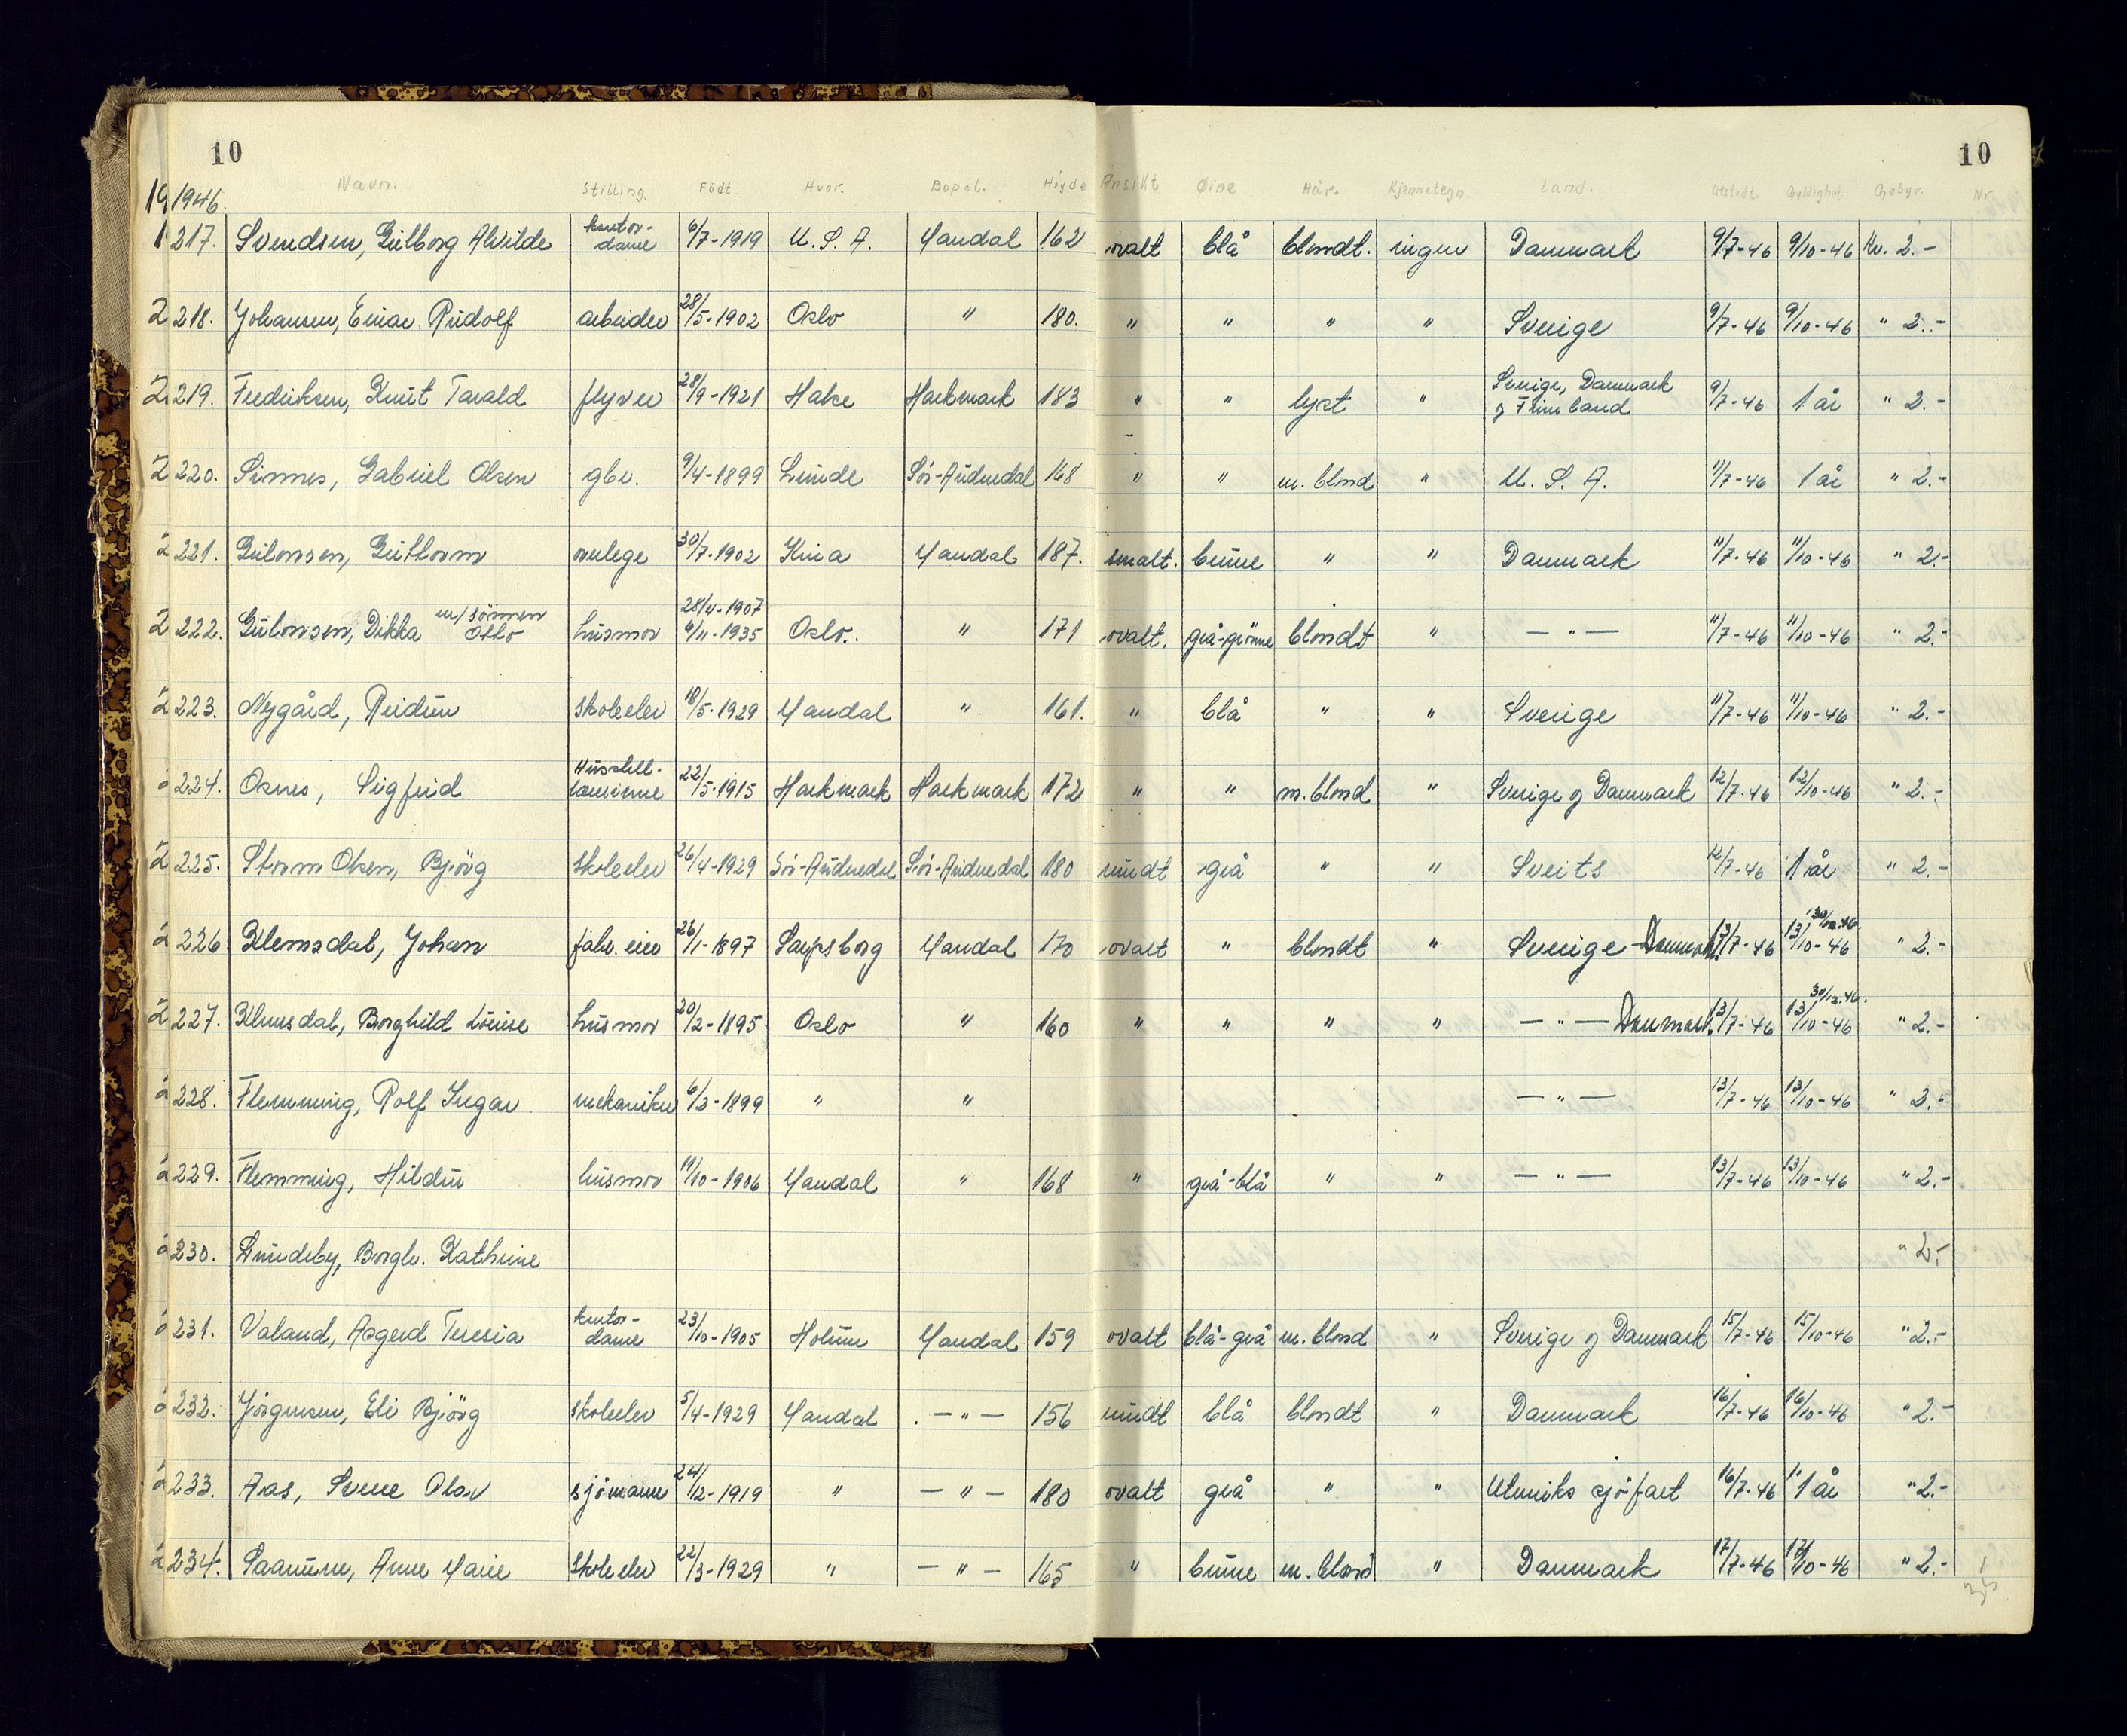 10
10
1946.
Navn. Stilling. Födt Hvor. Bopel. Høyde Ansikt Øine Hår. Kjennetegn. Land. Utstedt Gyldighet Gebyr. Nr.
217. Svendsen, Gulborg Alvilde kontor-dame 6/7-1919 U.S.A. Mandal 162 ovalt blå blondt. ingen Danmark 9/7-46 9/10-46 Kr. 2.-
218. Johansen, Einar Rudolf arbeider 28/5-1902 Oslo " 180. " " " " Sverige 9/7-46 9/10-46 " 2.-
219. Fredriksen, Knut Tarald flyver 28/9-1921 Halse Harkmark 183 " " lyst " Sverige, Danmark og Finnland 9/7-46 1 år " 2.-
220. Sinnes, Gabriel Olsen gbr. 9/4-1899 Lunde Sör-Audnedal 168 " " m. blond " U.S.A. 11/7-46 1 år " 2.-
221. Gulonsen, Guttorm 30/7-1902 Kina Mandal 187. smalt. brune " " Danmark 11/7-46 11/10-46 " 2.-
222. Gulonsen, Dikka m/sönnen Otto husmor 28/4-1907 6/11-1935 Oslo.. " 171 ovalt. grå-grönne blondt " — " — 11/7-46 11/10-46 " 2.-
223. Nygård, Reidun skoleelev 18/5-1929 Mandal " 161. " blå " " Sverige 11/7-46 11/10-46 " 2.-
224. Osnes, Sigfrid Husstell-lærerinne 22/5-1915 Harkmark Harkmark 172 " " m. blond " Sverige og Danmark 12/7-46 12/10-46 " 2.-
225. Storm Olsen, Björg skoleelev 26/4-1929 Sör-Audnedal Sör-Audnedal 180 rundt grå " " Sveits 12/7-46 1 år " 2.-
226. Klemsdal, Johan fabr. eier 26/1-1897 Sarpsborg Mandal 170 ovalt " blondt " Sverige Danmark 13/7-46 13/10-46 30/12.46. " 2.-
227. Klemsdal, Borghild Louise husmor 20/2-1895 Oslo " 160 " " " " — " — Danmark 13/7-46 13/10-46 30/12.46. " 2.-
228. Flemming, Rolf Ingar mekaniker 6/3-1899 " " — " — 13/7-46 13/10-46 " 2.-
229. Flemming, Hildur husmor 11/10-1906 Mandal " 168 " grå-blå " " — " — 13/7-46 13/10-46 " 2.-
230. Lundeby, Borgh. Kathrine " 2.-
231. Valand, Asgerd Teresia kontor-dame 23/10-1905 Holum Mandal 159 ovalt blå-grå m. blond " Sverige og Danmark 15/7-46 15/10-46 " 2.-
232. Jörgensen, Eli Björg skoleelev 5/4-1929 Mandal — " — 156 rundt blå blondt " Danmark 16/7-46 16/10-46 " 2.-
233. Aas, Sverre Olav sjömann 24/12-1919 " — " — 180 ovalt grå " " Utenriks sjöfart 16/7-46 1 år " 2.-
234. Saanum, Anne Marie skoleelev 22/3-1929 " — " — 165 " brune m. blond " Danmark 17/7-46 17/10-46 " 2.-